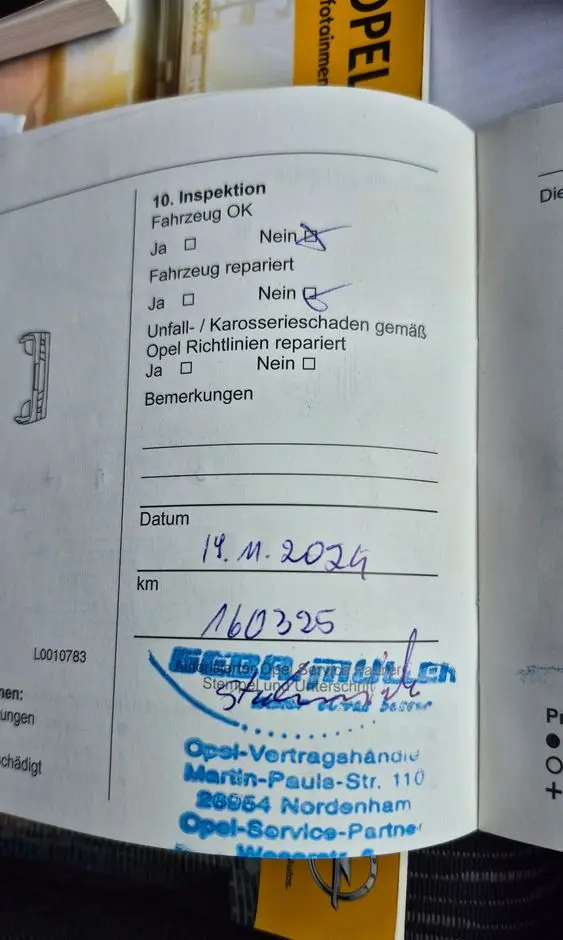 OPEL
fotainmen
10. Inspektion
Fahrzeug OK
Ja Nein
Fahrzeug repariert
Ja Nein
Unfall- / Karosserieschaden gemäß
Opel Richtlinien repariert
Ja Nein
Bemerkungen
Datum
14.11.2024
km
160325
Autorisierter Opel Service Partner
Stempel und Unterschrift
besser
Opel-Vertragshändle
Martin-Pauls-Str. 110
26954 Nordenham
Opel-Service-Partner
L0010783
nen:
ungen
chädigt
Die